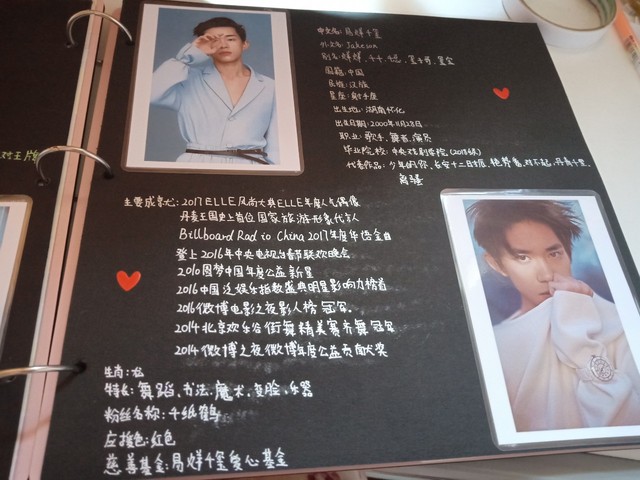 对王牌
中文名:易烊千玺
外文名:Jackson
别名:烊烊、千千、千总、玺子哥、玺宝
国籍:中国
民族:汉族
星座:射手座
出生地:湖南怀化
出生日期:2000年11月28日
职业:歌手、舞者、演员
毕业院校:中央戏剧学院(2018级)
代表作品:少年的你、长安十二时辰、艳势番、对不起、丹青千里、
离骚
主要成就:2017ELLE风尚大典ELLE年度人气偶像
丹麦王国史上首位国家旅游形象代言人
Billboard Radio China 2017年度华语金曲
登上2016年中央电视台春节联欢晚会
2016圆梦中国年度公益新星
2016中国泛娱乐指数盛典明星影响力榜首
2016微博电影之夜影人榜冠军
2014北京欢乐谷街舞精英赛齐舞冠军
2014微博之夜微博年度公益贡献大奖
生肖:龙
特长:舞蹈、书法、魔术、变脸、乐器
粉丝名称:千纸鹤
应援色:红色
慈善基金:易烊千玺爱心基金